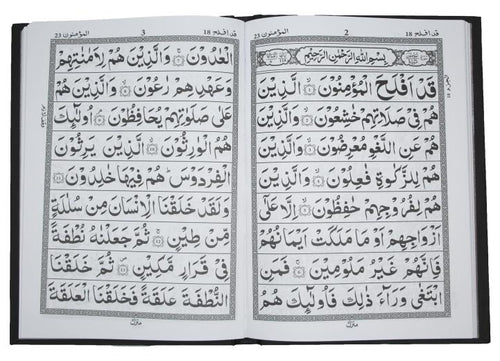 قد افلح 18
2
المؤمنون 23
بِسْمِ اللهِ الرَّحْمٰنِ الرَّحِيْمِ
قَدْ اَفْلَحَ الْمُؤْمِنُوْنَ ۝ الَّذِيْنَ
هُمْ فِيْ صَلَاتِهِمْ خٰشِعُوْنَ ۝ وَالَّذِيْنَ
هُمْ عَنِ اللَّغْوِ مُعْرِضُوْنَ ۝ وَالَّذِيْنَ
هُمْ لِلزَّكٰوةِ فٰعِلُوْنَ ۝ وَالَّذِيْنَ
هُمْ لِفُرُوْجِهِمْ حٰفِظُوْنَ ۝ اِلَّا عَلٰٓى
اَزْوَاجِهِمْ اَوْ مَا مَلَكَتْ اَيْمَانُهُمْ
فَاِنَّهُمْ غَيْرُ مَلُوْمِيْنَ ۝ فَمَنِ
ابْتَغٰى وَرَآءَ ذٰلِكَ فَاُولٰٓئِكَ هُمُ
منزل
قد افلح 18
3
المؤمنون 23
الْعٰدُوْنَ ۝ وَالَّذِيْنَ هُمْ لِاَمٰنٰتِهِمْ
وَعَهْدِهِمْ رٰعُوْنَ ۝ وَالَّذِيْنَ هُمْ
عَلٰى صَلَوٰتِهِمْ يُحَافِظُوْنَ ۝ اُولٰٓئِكَ
هُمُ الْوٰرِثُوْنَ ۝ الَّذِيْنَ يَرِثُوْنَ
الْفِرْدَوْسَ هُمْ فِيْهَا خٰلِدُوْنَ ۝
وَلَقَدْ خَلَقْنَا الْاِنْسَانَ مِنْ سُلٰلَةٍ
مِّنْ طِيْنٍ ۝ ثُمَّ جَعَلْنٰهُ نُطْفَةً
فِيْ قَرَارٍ مَّكِيْنٍ ۝ ثُمَّ خَلَقْنَا
النُّطْفَةَ عَلَقَةً فَخَلَقْنَا الْعَلَقَةَ
منزل